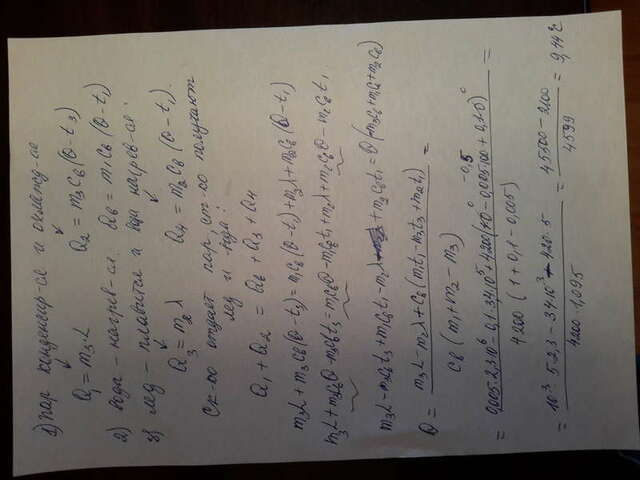 1) пар конденсир-ся и охлажд-ся
Q₁ = m₃L   Q₂ = m₃Cв(θ-t₃)
2) вода – нагрев-ся   Qв = m₁Cв(θ-t₁)
3) лёд – плавится и вода нагрев-ся:
Q₃ = m₂λ   Q₄ = m₂Cв(θ-t₁).
Ск-ко отдаёт пар, ст-ко получают
лёд и вода:
Q₁ + Q₂ = Qв + Q₃ + Q₄
m₃L + m₃Cв(θ-t₃) = m₁Cв(θ-t₁) + m₂λ + m₂Cв(θ-t₁)
m₃L + m₃Cвθ - m₃Cвt₃ = m₁Cвθ - m₁Cвt₁ + m₂λ + m₂Cвθ - m₂Cвt₁.
m₃L - m₃Cвt₃ + m₁Cвt₁ - m₂λ + m₂Cвt₁ = θ(-m₃Cв + m₁Cв + m₂Cв)
θ = m₃L - m₂λ + Cв(m₁t₁ - m₃t₃ + m₂t₁) / Cв(m₁ + m₂ - m₃) =
= 0,005·2,3·10⁶ - 0,1·34·10⁵ + 4200(1·0 - 0,005·100 + 0,1·0) / 4200(1 + 0,1 - 0,005) =
= 10³·5·2,3 - 34·10³ - 4200·5 / 4200·1,095 = 45100 - 2100 / 4599 = 9,44°C